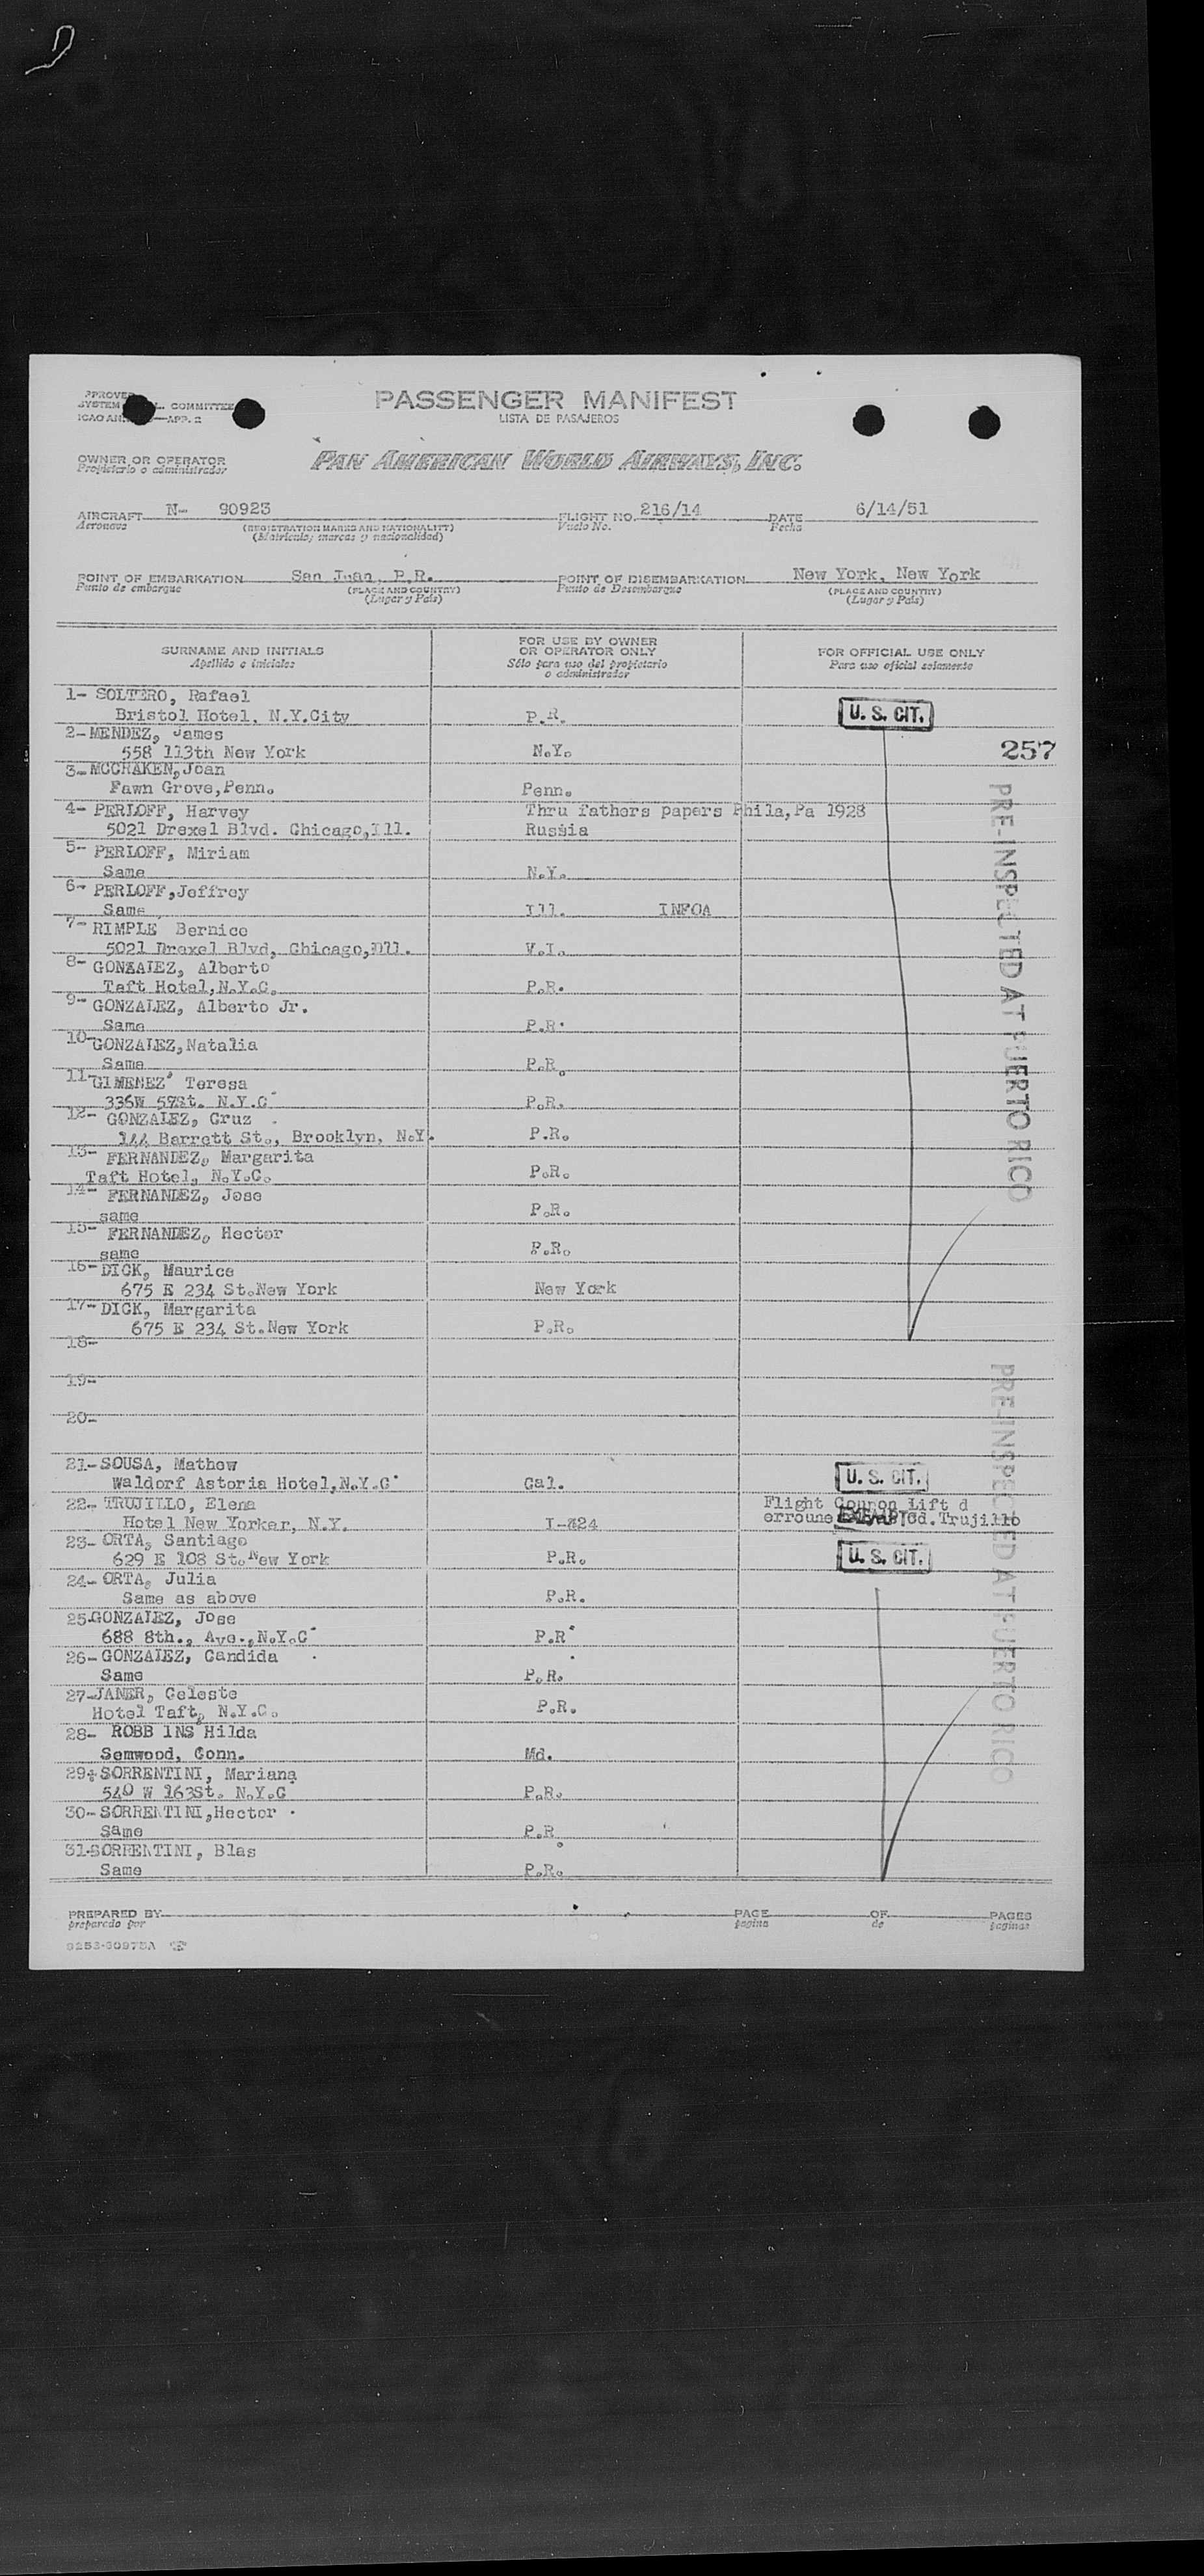 PASSENGER MANIFEST
LISTA DE PASAJEROS
COMMITTEE
APP. 2
OWNER OR OPERATOR
Propietario o administrador
PAN AMERICAN WORLD AIRWAYS, INC.
AIRCRAFT N- 90923 FLIGHT NO. 216/14 DATE 6/14/51
Aeronave (REGISTRATION MARKS AND NATIONALITY) Vuelo No. Fecha
(Matrícula, marcas y nacionalidad)
POINT OF EMBARKATION San Juan, P.R. POINT OF DISEMBARKATION New York, New York
Punto de embarque (PLACE AND COUNTRY) Punto de Desembarque (PLACE AND COUNTRY)
(Lugar y País) (Lugar y País)
SURNAME AND INITIALS FOR USE BY OWNER OR OPERATOR ONLY FOR OFFICIAL USE ONLY
Apellido e iniciales Sólo para uso del propietario o administrador Para uso oficial solamente
1- SOLTERO, Rafael
Bristol Hotel, N.Y.City P.R. U. S. CIT.
2-MENDEZ, James
558 113th New York N.Y. 257
3-MCCRAKEN,Joan
Fawn Grove,Penn. Penn.
4- PERLOFF, Harvey Thru fathers papers Phila,Pa 1928
5021 Drexel Blvd. Chicago,Ill. Russia
5- PERLOFF, Miriam
Same N.Y.
6- PERLOFF,Jeffrey
Same Ill. INFOA
7- RIMPLE Bernice
5021 Drexel Blvd, Chicago,Ill. V.I.
8- GONZALEZ, Alberto
Taft Hotel,N.Y.C. P.R.
9- GONZALEZ, Alberto Jr.
Same P.R.
10-GONZALEZ,Natalia
Same P.R.
11-GIMENEZ, Teresa
336W 59St. N.Y.C. P.R.
12- GONZALEZ, Cruz
144 Barrett St., Brooklyn, N.Y. P.R.
13- FERNANDEZ, Margarita
Taft Hotel, N.Y.C. P.R.
14- FERNANDEZ, Jose
same P.R.
15- FERNANDEZ, Hector
same P.R.
16-DICK, Maurice
675 E 234 St.New York New York
17-DICK, Margarita
675 E 234 St.New York P.R.
18-
19-
20-
PRE-INSPECTED AT PUERTO RICO
21-SOUSA, Mathew
Waldorf Astoria Hotel,N.Y.C. Cal. U. S. CIT.
22- TRUJILLO, Elena Flight Coupon Lift d
Hotel New Yorker, N.Y. I-424 Trujillo
23- ORTA, Santiago
629 E 108 St.New York P.R. U. S. CIT.
24- ORTA, Julia
Same as above P.R.
25-GONZALEZ, Jose
688 8th., Ave.,N.Y.C. P.R.
26-GONZALEZ, Candida
Same P.R.
27-JANER, Celeste
Hotel Taft, N.Y.C. P.R.
28- ROBBINS Hilda
Semwood, Conn. Md.
29-SORRENTINI, Mariana
540 W 163St. N.Y.C. P.R.
30-SORRENTINI,Hector
Same P.R.
31-SORRENTINI, Blas
Same P.R.
PRE-INSPECTED AT PUERTO RICO
PREPARED BY PAGE OF PAGES
preparado por pagina de paginas